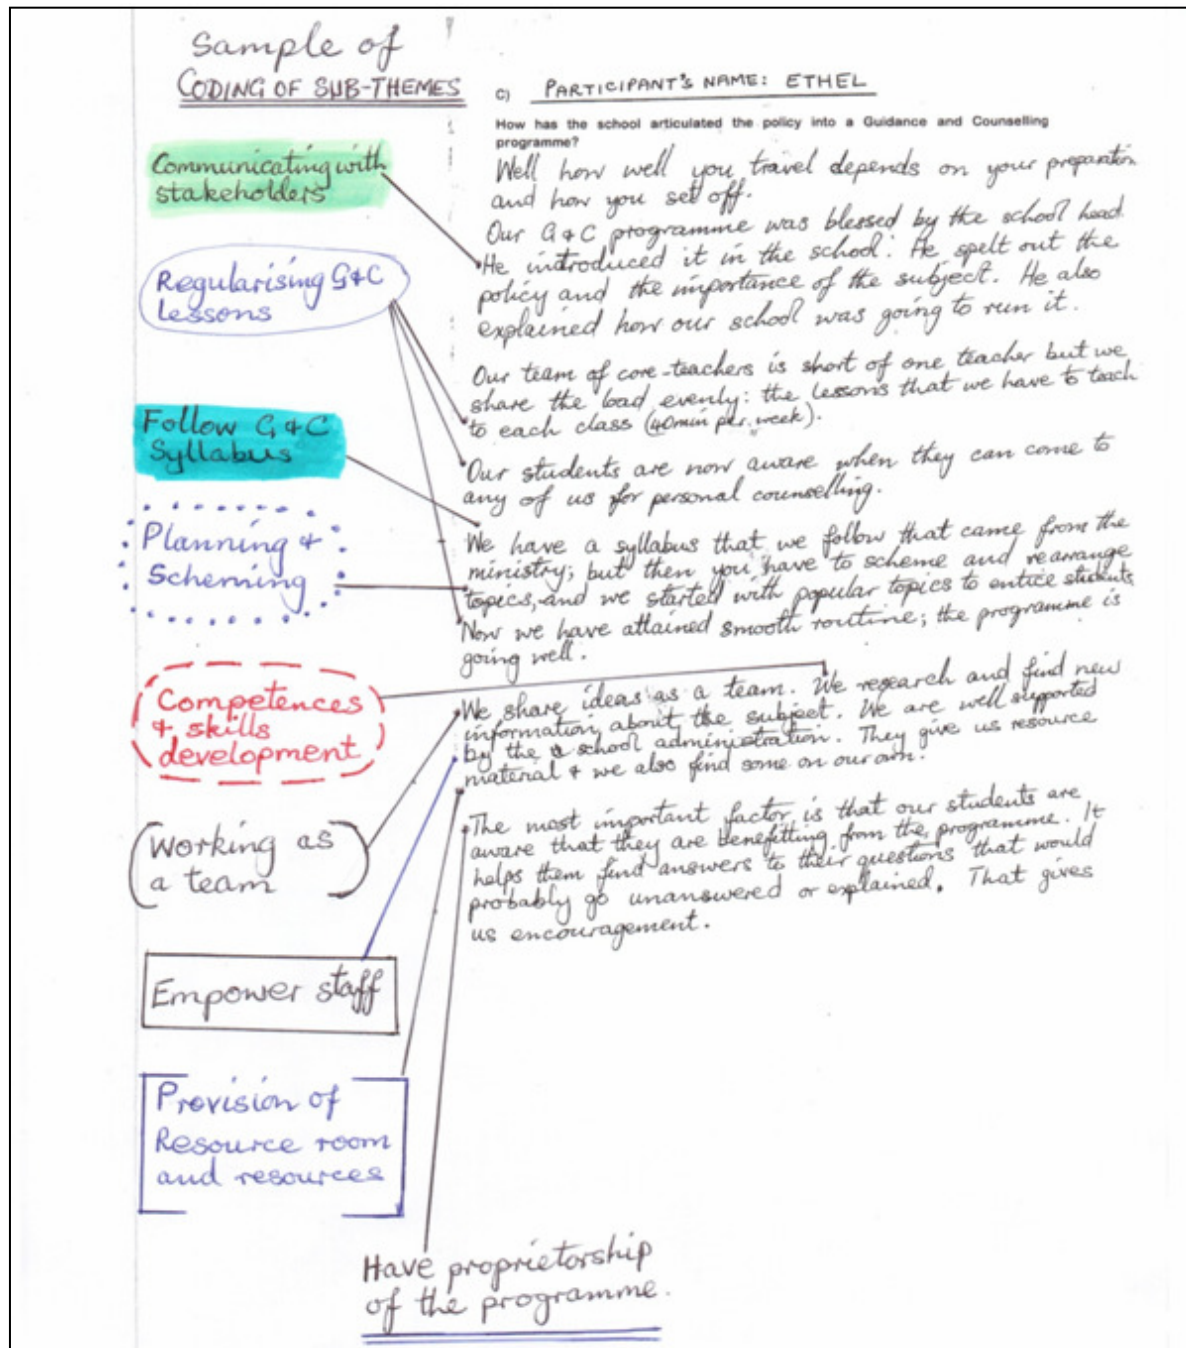 Sample of
CODING OF SUB-THEMES
Communicating with
stakeholders
Regularising G&C
lessons
Follow G & C
Syllabus
Planning &
Scheming
Competences
& skills
development
Working as
a team
Empower staff
Provision of
Resource room
and resources
Have proprietorship
of the programme.
c) PARTICIPANT'S NAME: ETHEL
How has the school articulated the policy into a Guidance and Counselling
programme?
Well how well you travel depends on your preparation
and how you set off.
Our G & C programme was blessed by the school head.
He introduced it in the school. He spelt out the
policy and the importance of the subject. He also
explained how our school was going to run it.
Our team of core-teachers is short of one teacher but we
share the load evenly: the lessons that we have to teach
to each class (40min per week).
Our students are now aware when they can come to
any of us for personal counselling.
We have a syllabus that we follow that came from the
ministry; but then you have to scheme and rearrange
topics, and we started with popular topics to entice students
Now we have attained smooth routine; the programme is
going well.
We share ideas as a team. We research and find new
information about the subject. We are well supported
by the school administration. They give us resource
material & we also find some on our own.
The most important factor is that our students are
aware that they are benefitting from the programme. It
helps them find answers to their questions that would
probably go unanswered or explained. That gives
us encouragement.